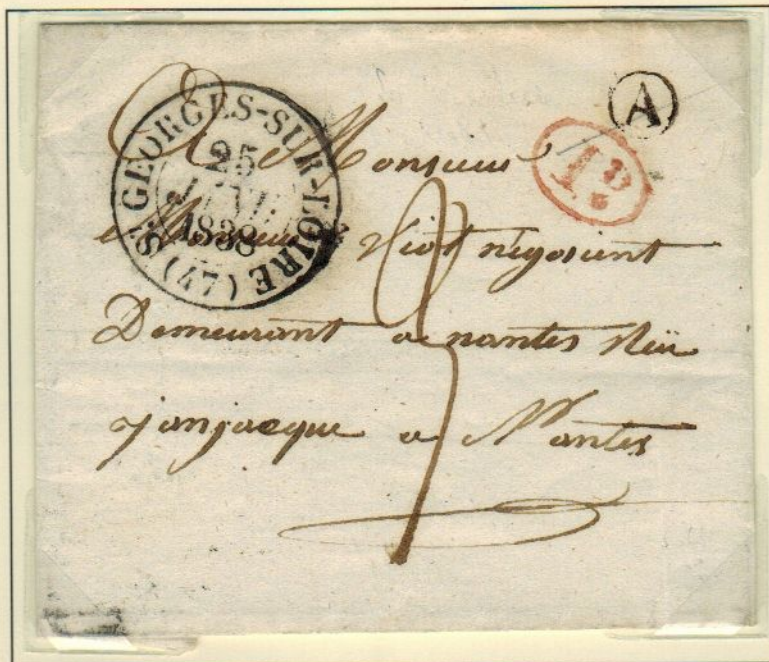 ST GEORGES-SUR-LOIRE (47)
25
1838
A
1D
A Monsieur
Monsieur Viot négosient
Demeurant a nantes Rüe
janjacque a Nantes